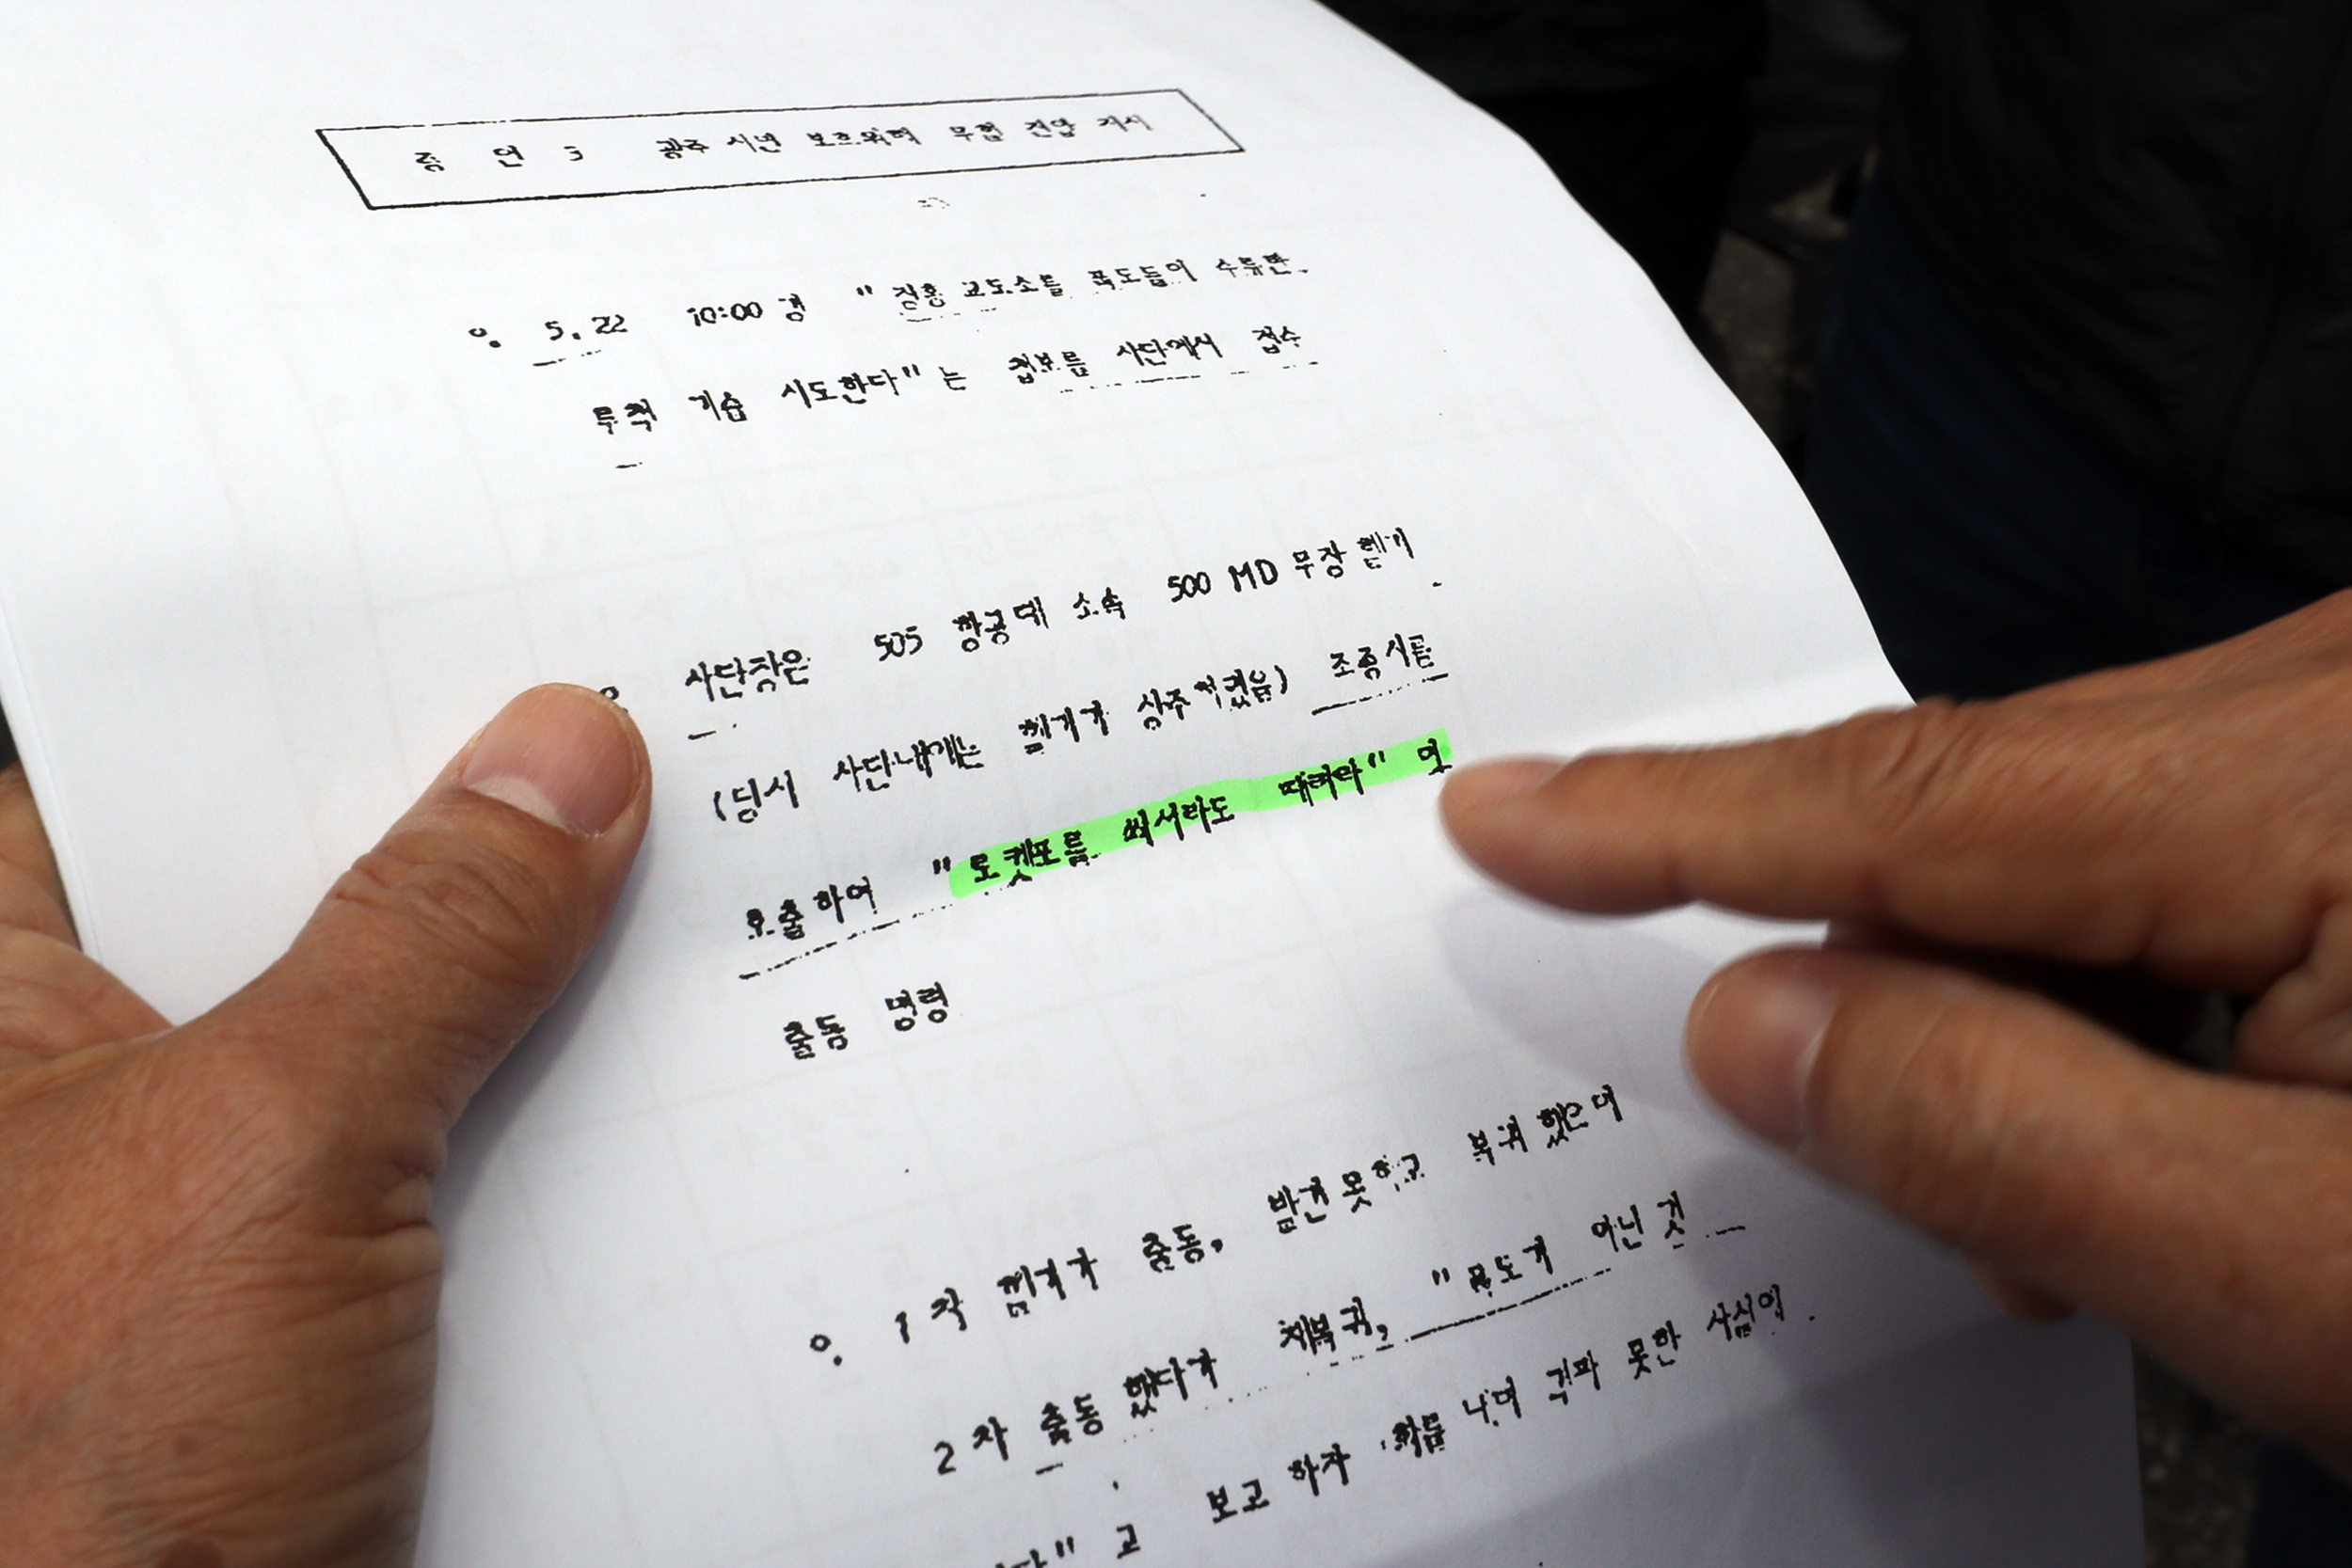 증 언 3 광주 시민 보호위해 무협 진압 지시
o. 5.22 10:00경 "장흥 교도소를 폭도들이 수류탄
투척 기습 시도한다"는 첩보를 사단에서 접수
o. 사단장은 505 항공대 소속 500 MD 무장 헬기
(당시 사단내에는 헬기가 상주하였음) 조종사를
호출하여 "로켓포를 쏴서라도 때려라" 며
출동 명령
o. 1차 헬기가 출동, 발견못하고 복귀 했는데
2차 출동 했다가 재복귀, "폭도가 아닌 것
" 고 보고 하자 화를 내며 격파 못한 사실에